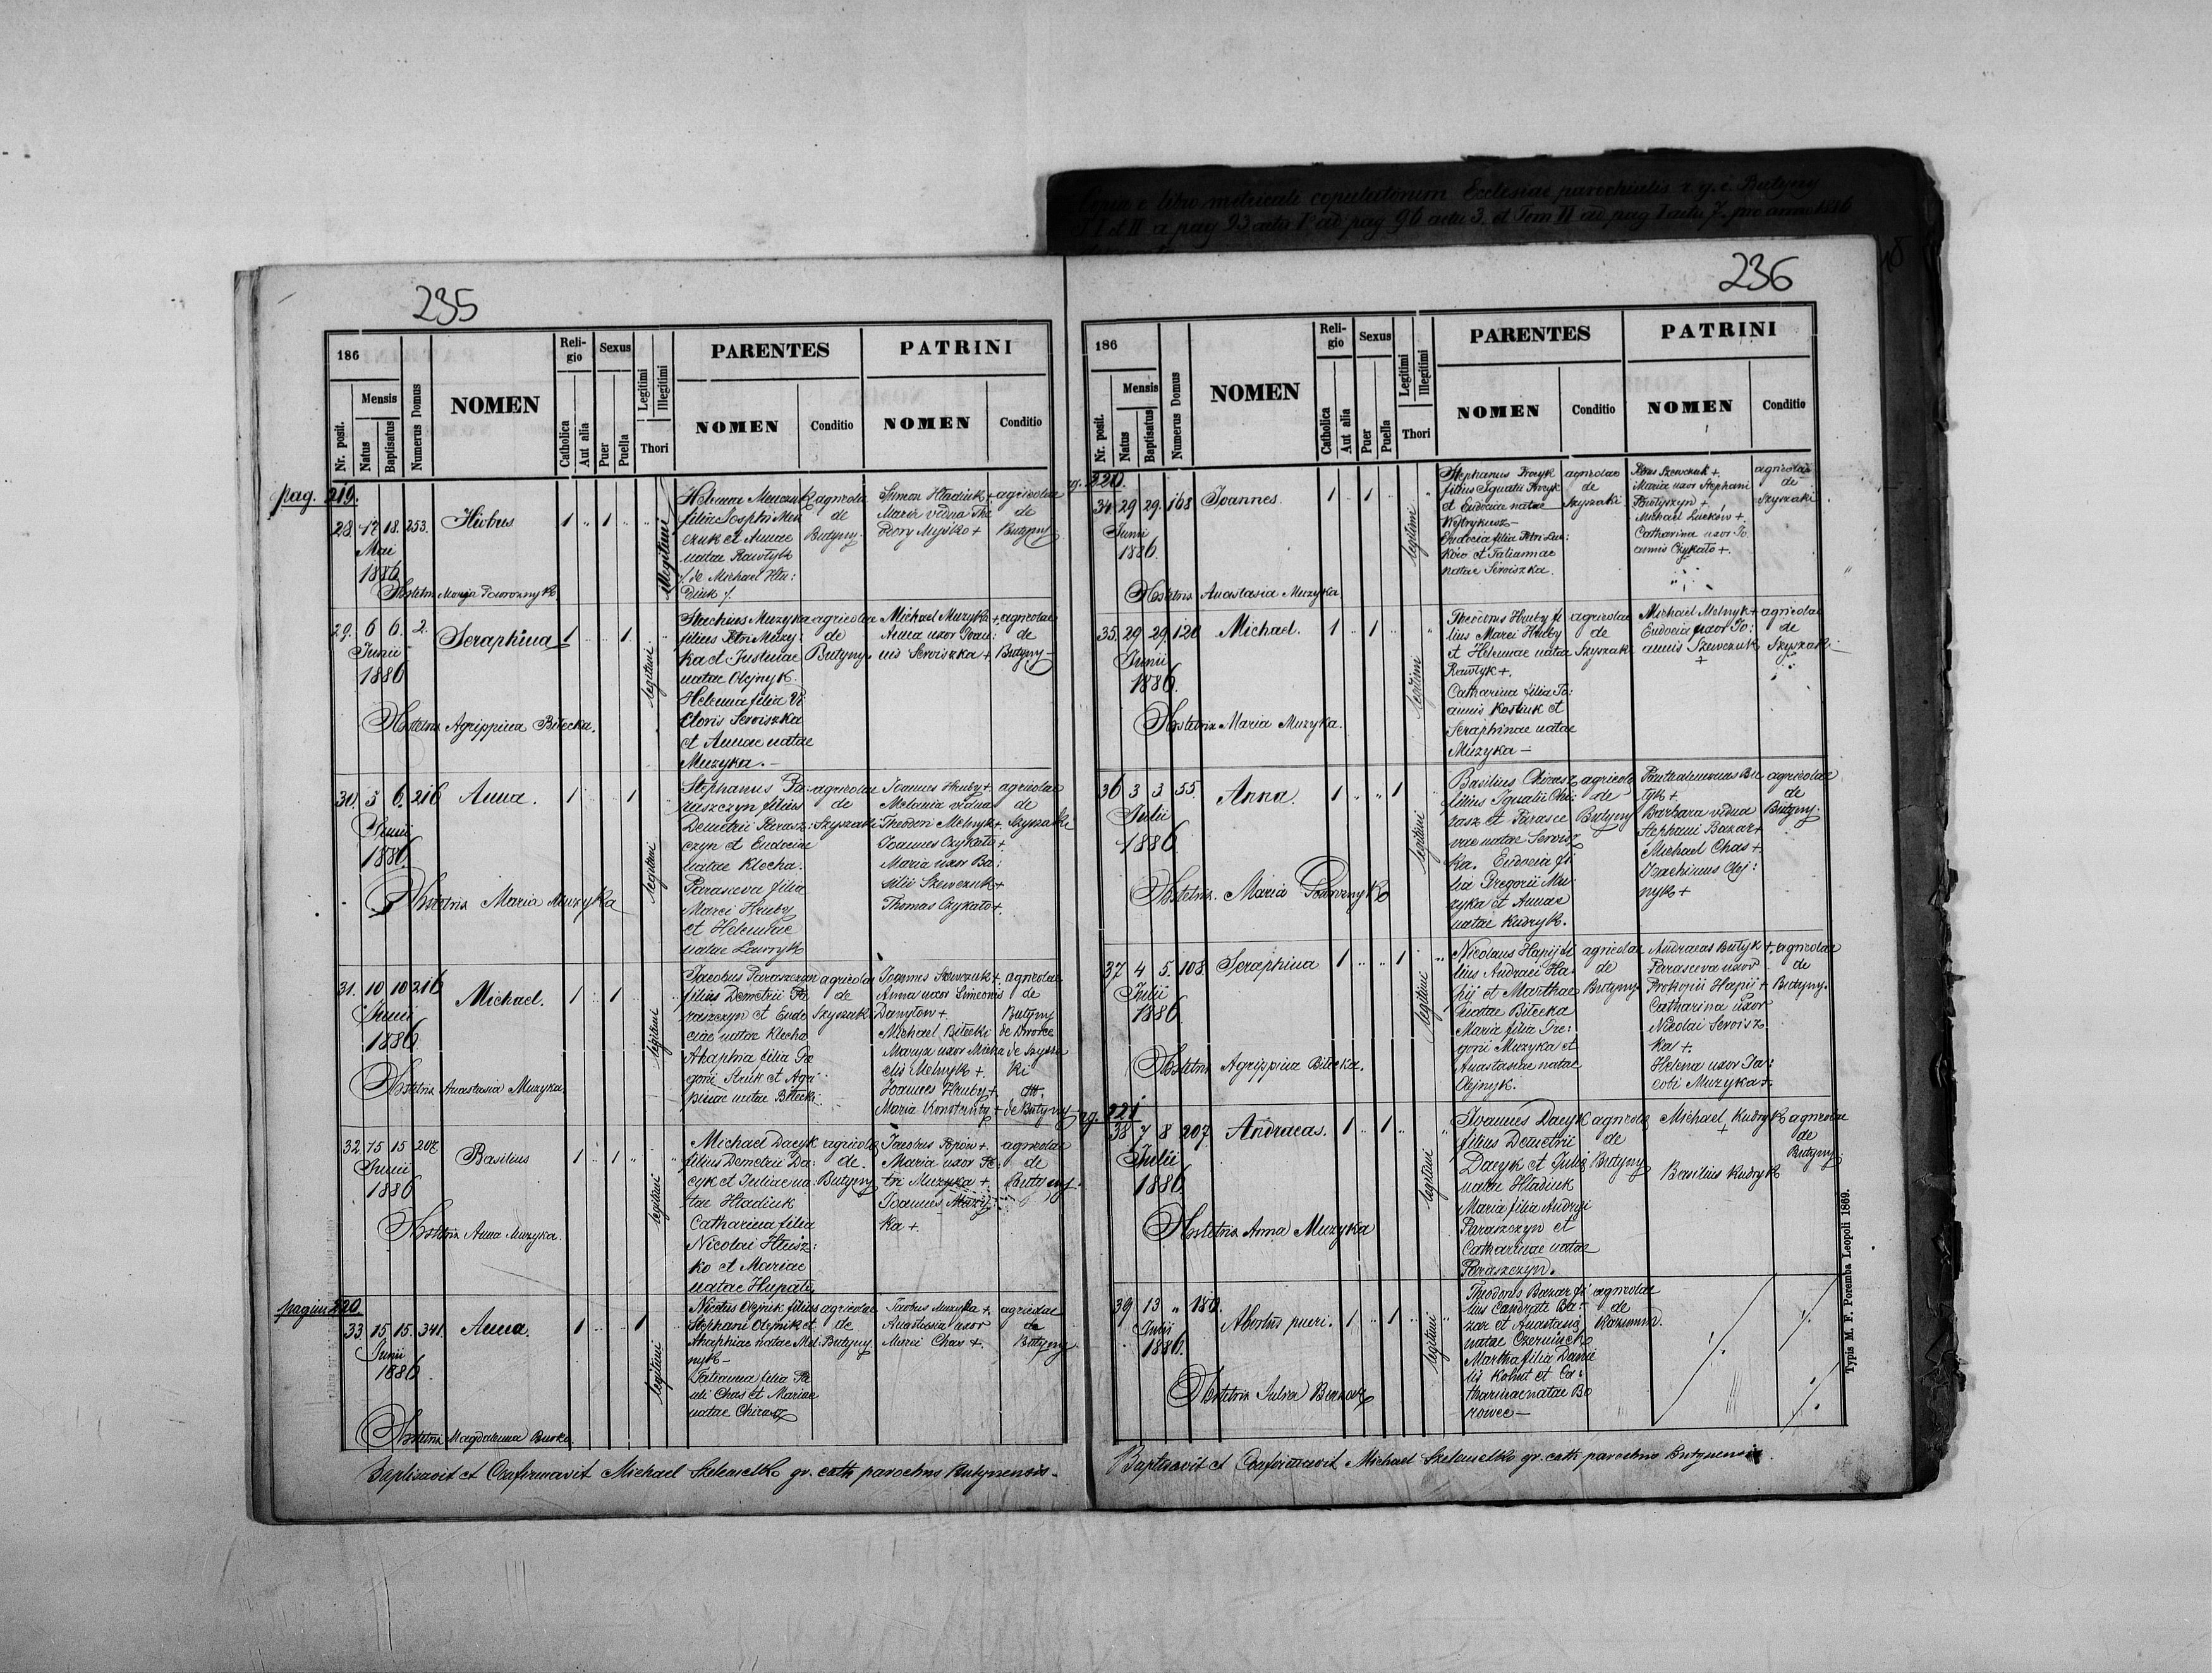 Copia e libro metricali copulatorum Ecclesiae parochialis r. g. c. Butyny
235
186
Mensis
Nr. posit.
Natus
Baptisatus
Numerus Domus
NOMEN
Reli-
gio
Catholica
Aut alia
Sexus
Puer
Puella
Legitimi
Illegitimi
Thori
PARENTES
NOMEN
Conditio
PATRINI
NOMEN
Conditio
pag. 219.
28. 17 18. 253.
Mai
1886
1 " 1
illegitimi
Helena
filia Josephi Men
czuk et Annae
natae Kawtyk
/ de Michael Hla:
diuk /.
agricola
de
Butyny
Simon Hladiuk +
Maria vidua The
odory Myśko +
agricolae
de
Butyny
Obstetrix
29. 6 6. 2.
Junii
1886
Seraphina
1 1
legitimi
Stachius Muzyka
filius Petri Muzy:
ka et Justinae
natae Olejnyk.
Helena filia Vi
ctoris Serwiszka
et Annae natae
Muzyka. -
agricolae
de
Butyny.
Michael Muzyka +
Anna uxor Joan:
nis Serwiszka +
agricolae
de
Butyny -
Obstetrix Agrippina Bilecka.
30. 3 6. 216
Junii
1886.
Anna.
1 1
legitimi
Stephanus Pa-
raszczyn filius
Demetrii Parasz:
czyn et Eudociae
natae Klecha.
Parasceva filia
Marci Hruby
et Helenae
natae Lawryk
agricolae
de
Szyszaki
Joannes Hruby +
Melania vidua
Theodori Melnyk +
Joannes Czykało +
Maria uxor Ba:
silii Szewczuk +
Thomas Czykało +.
agricolae
de
Szyszaki
Obstetrix Maria Muzyka
31. 10 10 216
Junii
1886
Michael.
1 1
legitimi
Jacobus Paraszczyn
filius Demetrii Pa
raszczyn et Eudo
ciae natae Klecha
Ahaphia filia Gre
gorii Struk et Agri
pinae natae Bilecki
agricolae
de
Szyszaki
Joannes Szewczuk +
Anna uxor Simeonis
Danyłow +.
Michael Bilecki
Marya uxor Micha
elis Melnyk +.
Joannes Hruby +
agricolae
de
Butyny
de Dworce
de Szysza
ki
de Butyny
Obstetrix Anastasia Muzyka
32 15 15 207
Junii
1886
Basilius
1 1
legitimi
Michael Dacyk
filius Demetrii Da:
cyk et Juliae na
tae Hladiuk
Catharina filia
Nicolai Hłusz:
ko et Mariae
natae Hupało
agricolae
de
Butyny
Jacobus Popów +.
Maria uxor Pe:
tri Muzyka +.
Joannes Muzy:
ka +
agricolae
de
Butyny
Obstetrix Anna Muzyka.
pagina 220
33. 15 15. 341.
Junii
1886
Anna.
1 1
legitimi
Nicetus Olejnik filius
Stephani Olejnik et
Ahaphiae natae Mel:
nyk -
Tatianna filia Pa
uli Chas et Mariae
natae Chirasz
agricolae
de
Butyny.
Jacobus Muzyka +.
Anastasia uxor
Marci Chas +.
agricolae
de
Butyny
Obstetrix Magdalenna Burko
Baptisavit et Confirmavit Michael gr. cath parochus Butynensis.
236
186
Mensis
Nr. posit.
Natus
Baptisatus
Numerus Domus
NOMEN
Reli-
gio
Catholica
Aut alia
Sexus
Puer
Puella
Legitimi
Illegitimi
Thori
PARENTES
NOMEN
Conditio
PATRINI
NOMEN
Conditio
220.
34. 29 29. 168
Junii
1886
Joannes.
1 1
legitimi
Stephanus
filius Ignatii
et Eudociae natae
Wytrykusz -
Eudocia filia Petri Luc:
ków et Tatiannae
natae Serwiszka.
agricolae
de
Szyszaki
Petrus Szewczuk +
Maria uxor Stephani
Michael Luckow +.
Catharina uxor Jo
annis Czykało +.
agricolae
de
Szyszaki
Obstetrix Anastasia Muzyka
35. 29 29. 120
Junii
1886.
Michael.
1 1
legitimi
Theodorus Hruby fi
lius Marci Hruby
et Helenae natae
Kawtyk +.
Catharina filia Jo:
annis Kostiuk et
Seraphinae natae
Muzyka -
agricolae
de
Szyszaki
Michael Melnyk +
Eudocia uxor Jo:
annis Szewczuk
+
agricolae
de
Szyszaki -
Obstetrix Maria Muzyka.
36 3 3 55.
Julii
1886
Anna.
1 " " 1
legitimi
Basilius Chirasz
filius Ignatii Chi:
rasz et Parasce
vae natae Serwisz
ka. Eudocia fi
lia Gregorii Mu
zyka et Annae
natae Kudryk.
agricolae
de
Butyny
tyk +
Barbara vidua
Stephani Bazar +
Michael Chas +
Joachimus Olej:
nyk +
agricolae
de
Butyny.
Obstetrix. Maria
37 4 5. 108
Julii
1886
Seraphina
1 " " 1
legitimi
Nicolaus Hapij fi
lius Andraei Ha
pij et Marthae
natae Bilecka
Maria filia Gre:
gorii Muzyka et
Anastasiae natae
Olejnyk.
agricolae
de
Butyny
Andraeas Butyk +.
Parasceva uxor
Prokopii Hapij +
Catharina Uxor
Nicolai Serwisz
ka +.
Helena uxor Ja:
cobi Muzyka +.
agricolae
de
Butyny.
Obstetrix Agrippina Bilecka.
221
38 7 8 207.
Julii
1886
Andraeas.
1 1
legitimi
Joannes Dacyk
filius Demetrii
Dacyk et Julią
natae Hładiuk
Maria filia Andryi
Paraszczyn et
Catharinae natae
Paraszczyn.
agricolae
de
Butyny
Michael Kudryk
+
Basilius Kudryk
agricolae
de
Butyny
Obstetrix Anna Muzyka
39 13 " 180.
Julii
1886.
Abortus pueri.
1 1
legitimi
Theodorus Bazar fi
lius Condrati Ba-
zar et Anastasią
natae Czerwinck
Martha filia Danie
lis Kohut et Ca:
tharinae natae Bo
rowec -
agricolae
de
Obstetrix Julia
Baptisavit et Confirmavit Michael gr. cath parochus Butynensis.
Typis M. F. Poremba Leopoli 1869.